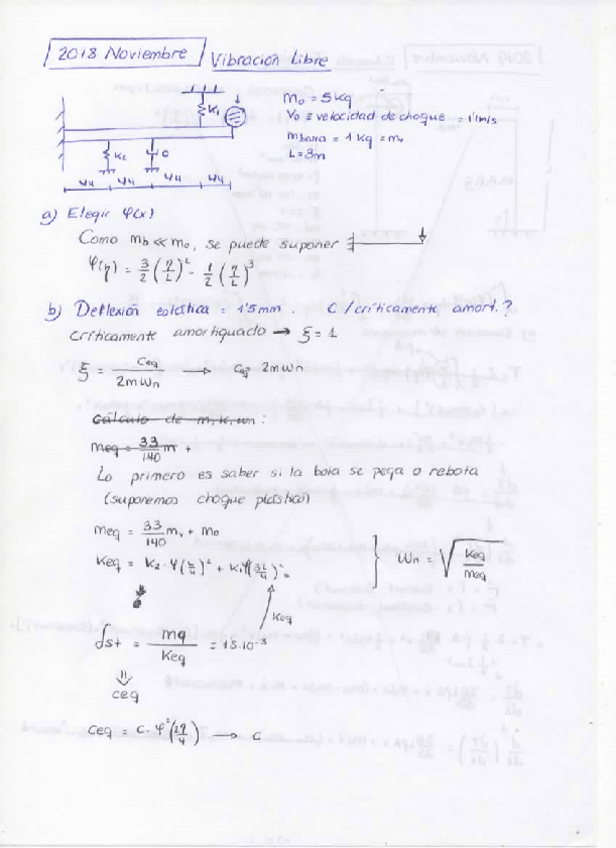 2018 Noviembre Vibración Libre
K1
m₀ = 5 kg
V₀ ≡ velocidad de choque = 1'1m/s
m barra = 1 kg = mᵥ
L = 3m
K2 C
L/4 L/4 L/4 L/4
a) Elegir φ(x)
Como mb << m₀, se puede suponer
φ(η) = 3/2 (η/L)² - 1/2 (η/L)³
b) Deflexión estática = 1'5mm. C/críticamente amort.?
críticamente amortiguado → ξ = 1
ξ = Ceq / 2mωn → Ceq = 2mωn
Cálculo de m, k, ωn:
meq = 33/140 m +
Lo primero es saber si la bola se pega o rebota
(suponemos choque plástico)
meq = 33/140 mᵥ + m₀
Keq = K2 · φ(L/4)² + K1 φ(3L/4)²
ωn = √(Keq/Meq)
Keq
δst = mg / Keq = 1'5·10⁻³
⇓
ceq
ceq = c · φ²(2L/4) → c